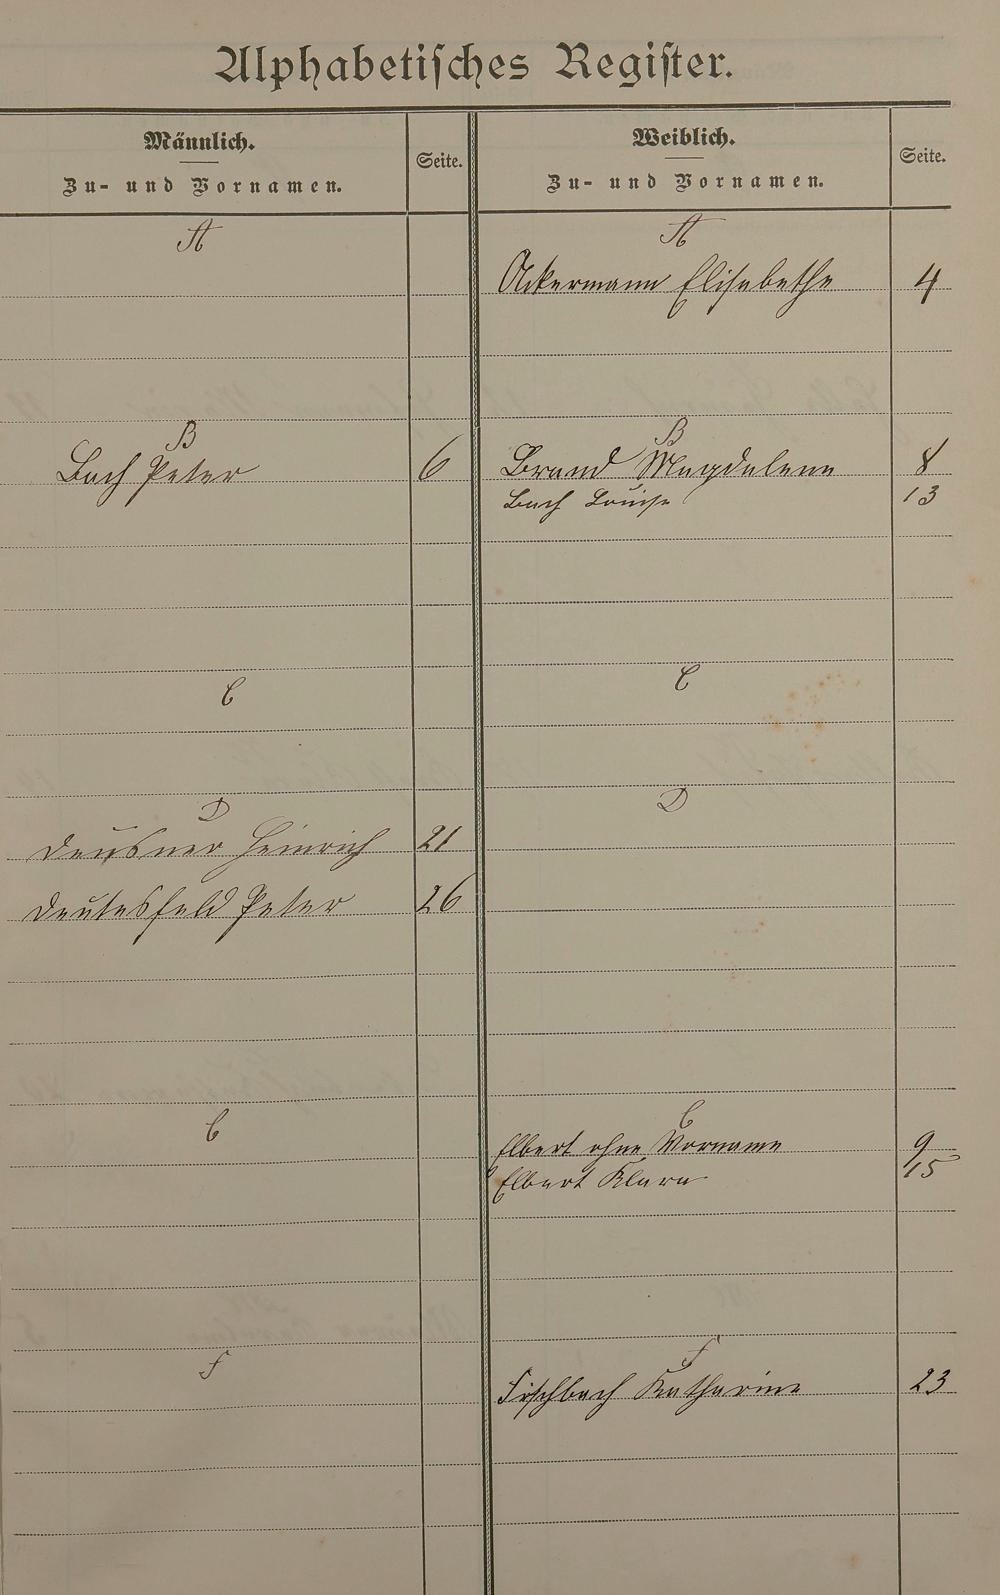 Alphabetisches Register.
Männlich.
Zu- und Vornamen.
Seite.
Weiblich.
Zu- und Vornamen.
Seite.
A
A
Ackermann Elisabethe 4
B
B
Bach Peter 6
Brand Magdalena 8
Bach Louise 13
C
C
D
D
Deusner Heinrich 21
Deutesfeld Peter 26
E
E
Elbert ohne Vorname 9
Elbert Klara 15
F
F
Fischbach Katharina 23